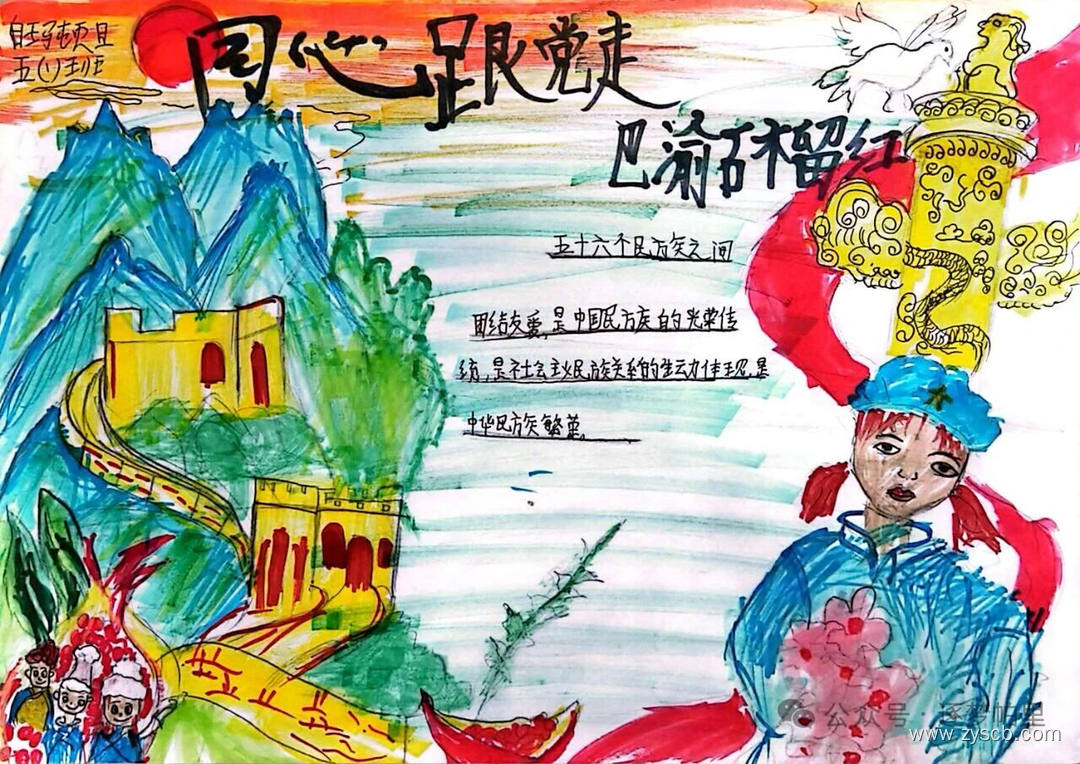 旺子顿旦
五(1)班
同心跟党走
巴渝石榴红
五十六个民族之间
团结友爱,是中国民族的光荣传
统,是社会主义民族关系的生动体现,是
中华民族繁荣
公众号·逐梦帕里
www.zyscb.com